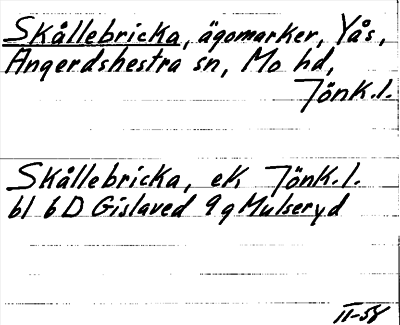 Skållebricka, ägomarker, Yås,
Ångerdshestra sn, Mo hd,
Jönk.l.
Skållebricka, ek, Jönk.l.
bl 6D Gislaved 9g Mulseryd
II-58